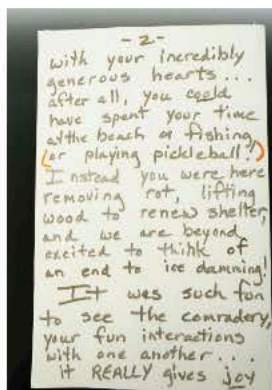 - 2 -
with your incredibly
generous hearts...
after all, you could
have spent your time
at the beach or fishing
(or playing pickleball!)
Instead you were here
removing rot, lifting
wood to renew shelter,
and we are beyond
excited to think of
an end to ice damning!
It was such fun
to see the comradery,
your fun interactions
with one another...
it REALLY gives joy